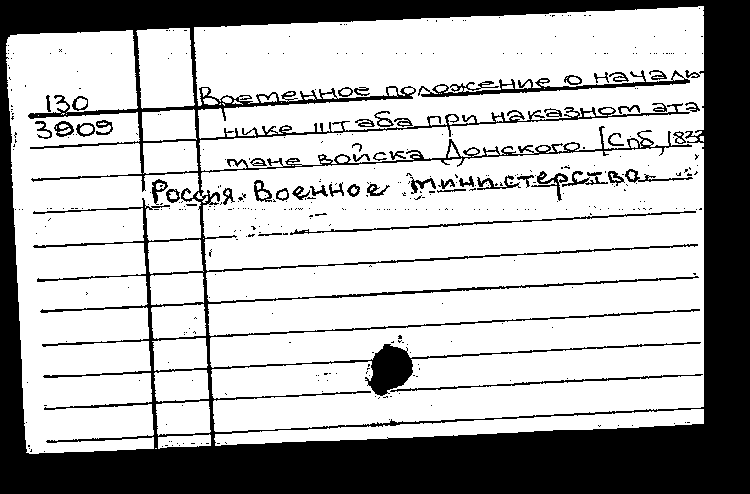 130 Временное положение о началь-
3909 нике штаба при наказном ата-
мане войска Донского. [Спб,
Россия. Военное министерство.